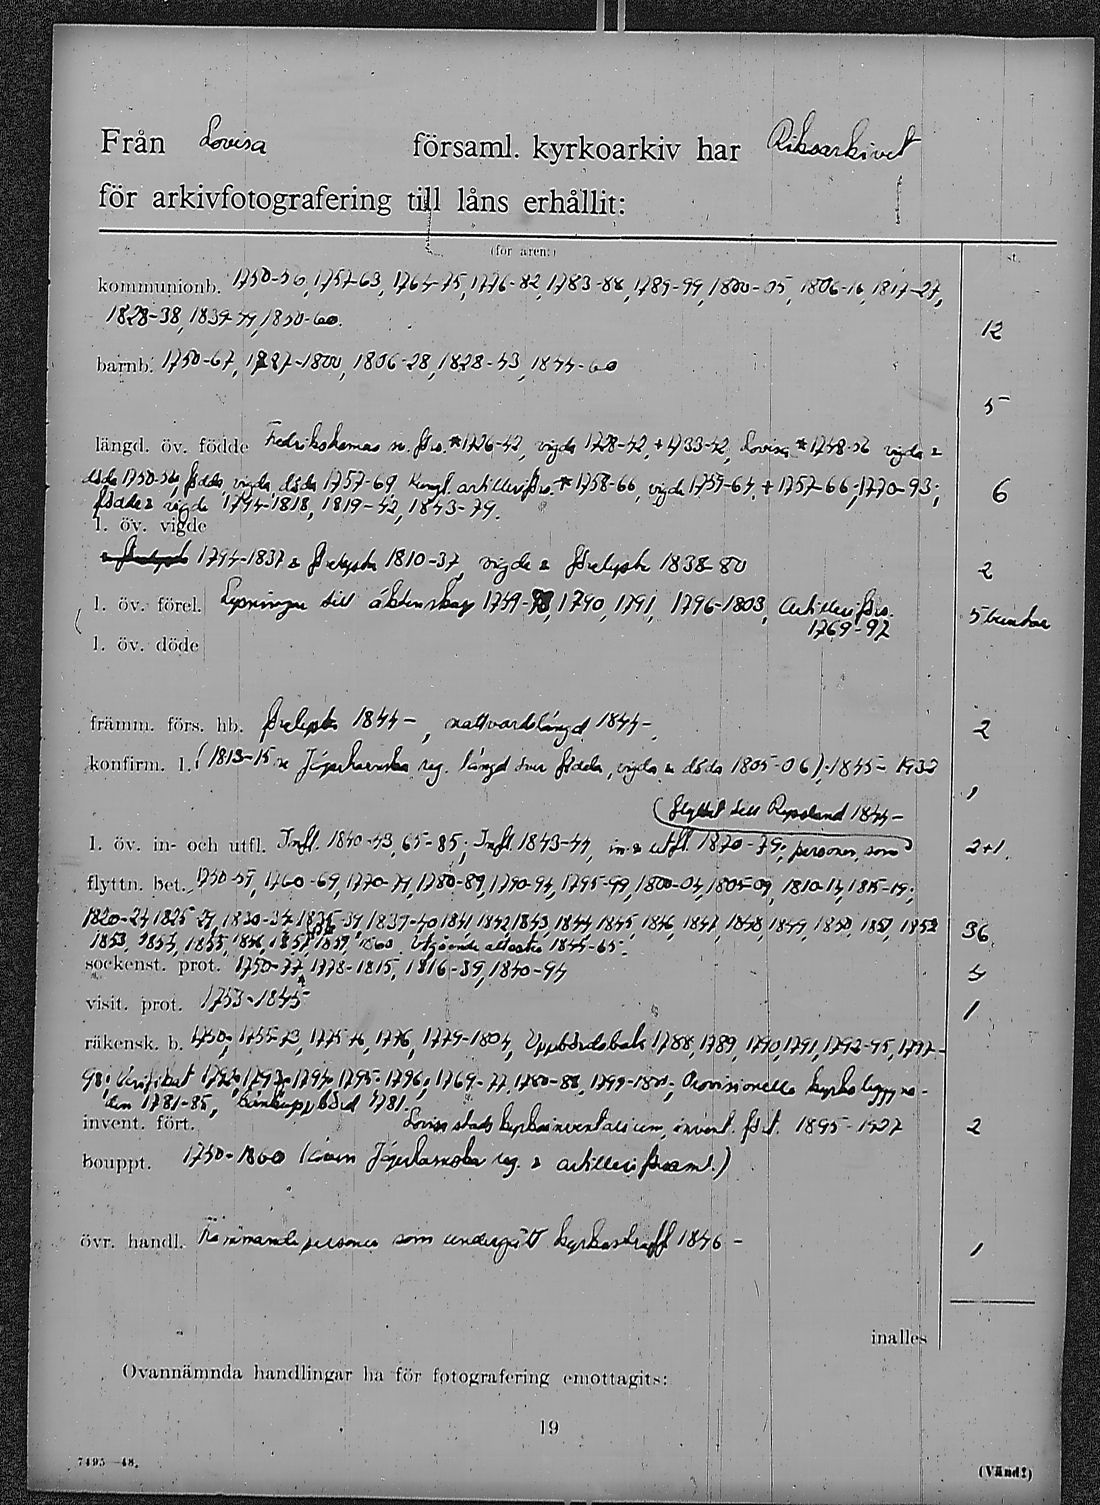 Från Lovisa församl. kyrkoarkiv har Riksarkivet
för arkivfotografering till låns erhållit:
(för åren:) st.
kommunionb. 1750-56, 1757-63, 1764-75, 1776-82, 1783-88, 1789-99, 1800-05, 1806-16, 1817-27,
1828-38, 1839-49, 1850-60. 12
barnb. 1750-67, 1787-1800, 1806-28, 1828-43, 1844-60
5
längd. öv. födde Fredrikshamns sv. förs. *1726-42, vigda 1728-42, +1733-42, Lovisa *1748-56 vigda &
döda 1750-56, födda, vigda, döda 1757-69 Kongl. artilleriförs. *1758-66, vigda 1759-64, + 1757-66, 1770-93; 6
födda & vigda 1794-1818, 1819-42, 1843-79.
l. öv. vigde
1794-1837 & förelysta 1810-37, vigde & förelysta 1838-80 2
l. öv. förel. Lysningar till äktenskap 1759- 1790, 1791, 1796-1803, Artilleriförs. 5 buntar
1769-92
l. öv. döde
främm. förs. hb. förelysta 1844- , nattvardslängd 1844- 2
konfirm. l. (1813-15 längd över födda, vigda & döda 1805-06), 1845-1932 1
(flyttat till Ryssland 1844-
l. öv. in- och utfl. Infl. 1840-43, 65-85; Infl. 1843-44, in & utfl. 1870-79; personer, som 2+1.
flyttn. bet. 1750-59, 1760-69, 1770-79, 1780-89, 1790-94, 1795-99, 1800-04, 1805-09, 1810-14, 1815-19;
1820-24 1825-29, 1830-34 1835-39 1837-40 1841, 1842, 1843, 1844, 1845, 1846, 1847, 1848, 1849, 1850, 1851, 1852 36
1853, 1854, 1855, 1856, 1857, 1859, 1860. Utgående attester 1845-65.
sockenst. prot. 1750-77, 1778-1815, 1816-39, 1840-94 4
visit. prot. 1753-1845 1
räkensk. b. 1750, 1755-73, 1775-76, 1776, 1779-1804, Uppbördsbok 1788, 1789, 1790, 1791, 1792-95, 1797-
98; Verifikat 1792, 1793, 1794, 1795, 1796; 1769-77, 1780-88, 1799-1801, Provisionella kyrkobyggna-
den 1781-85, 1781.
invent. fört. Lovisa stads kyrkoinventarium, invent. fört. 1895-1927 2
bouppt. 1750-1860 (även Jägerhornska reg. & artilleriförsaml.)
övr. handl. Främmande personer som undergått kyrkostraff 1846 - 1
inalles
Ovannämnda handlingar ha för fotografering emottagits:
19
7495—48. (Vänd!)